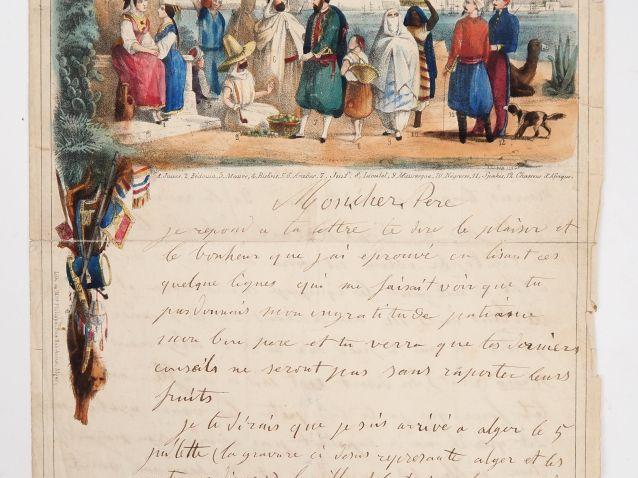 1. Juives, 2. Bédouin, 3. Maure, 4. Biskris, 5.6. Arabes, 7. Juif, 8. 9. Mauresque, 10. Négresse, 11. Spahis, 12. Chasseur d'Afrique.
Mon cher Pere
je repond a ta lettre te dire le plaisir et
le bonheur que j'ai eprouvé en lisant ces
quelque lignes qui me faisait voir que tu
pardonnais mon ingratitude patiance
mon bon pere et tu verra que tes derniers
conseils ne seront pas sans raporter leurs
fruits
je te dirais que je suis arrivé a alger le 5
juillette (la gravure ci desus represante alger et les